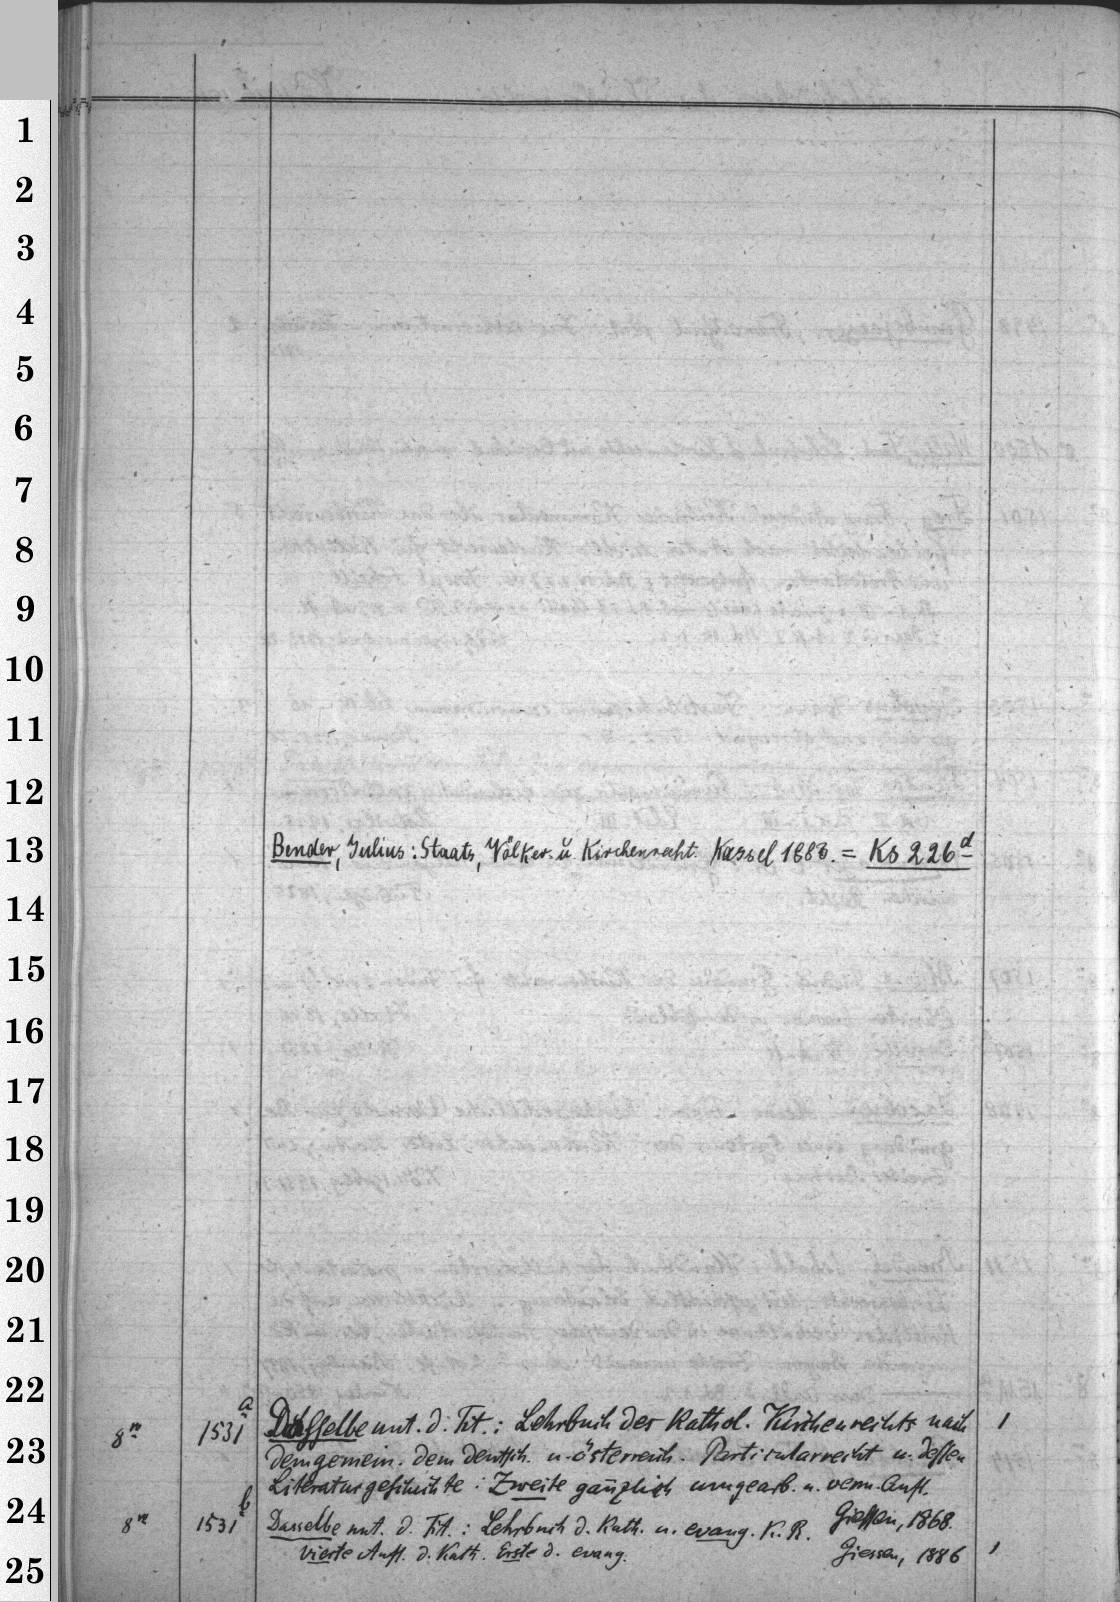 1
2
3
4
5
6
7
8
9
10
11
12
13
Bender, Julius: Staats, Völker. ŭ. Kirchenrecht. Kassel 1888. = Ks 226 d
14
15
16
17
18
19
20
21
22
8° 1531 a Dasselbe unt. d. Tit.: Lehrbuch des kathol. Kirchenrechts nach 1
23
dem gemein. dem deutsch. u. österreich. Particularrecht u. dessen
Literaturgeschichte: Zweite gänzlich umgearb. u. verm. Aufl.
24
Giessen, 1868.
8° 1531 b Dasselbe unt. d. Tit.: Lehrbuch d. Kath. u. evang. K. R.
vierte Aufl. d. Kath. Erste d. evang. Giessen, 1886 1
25